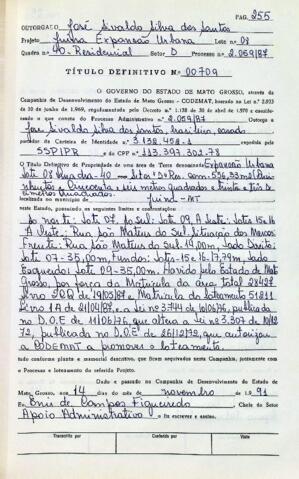 PAG. 255
OUTORGADO José Sivaldo Silva dos Santos
Projeto Juína Expansão Urbana Lote nº 08
Quadra nº 40-Residencial Setor D Processo nº 2.059/87
TÍTULO DEFINITIVO Nº 00709
O GOVERNO DO ESTADO DE MATO GROSSO, através da
Companhia de Desenvolvimento do Estado de Mato Grosso - CODEMAT, baseado na Lei nº 2.033
de 30 de junho de 1969, regulamentado pelo Decreto nº 1.138 de 30 de abril de 1970 e consideran-
do o que consta do Processo Administrativo nº 2.059/87 Outorga a
José Sivaldo Silva dos Santos, brasileiro, casado
portador da Carteira de Identidade nº 3.158.458-1 expedida pela
SSPIPR e do CPF nº 313.393.302-78
O Título Definitivo de Propriedade de uma área de Terra denominada Expansão Urbana
Lote 08 Quadra-40 - Setor D Res. com 556,33m² (Qui-
nhentos e Cinquenta e seis metros quadrados e trinta e três de-
címetros quadrados)
localizada no município de Juína - MT
neste Estado, possuindo os seguintes limites e confrontações:
Ao norte: Lote 07. Ao Sul: Lote 09, A Leste: Lote 15 e 16
A Oeste: Rua São Mateus do Sul. Situação dos Marcos
Frente: Rua São Mateus do Sul 14,00m, Lado Direito:
Lote 07-35,00m, Fundos: Lotes-15 e 16-17,79m, Lado
Esquerdo: Lote 09-35,00m. Havido pelo Estado de Mato
Grosso, por força da Matrícula da área total 28427
Livro 2CQ de 19/05/87 e Matrícula do loteamento 51811
Livro 1A de 21/04/87, e a Lei nº 3.744 de 10/06/76, publicada
no D.O.E de 11/06/76, que altera a Lei nº 3.307 de 10/12/
72, publicada no D.O.E de 26/12/72, que autorizou
a CODEMAT a promover o loteamento.
tudo conforme planta e memorial descritivo, que ficam arquivados nesta Companhia, juntamente com
o Processo e Loteamento do referido Projeto.
Dado e passado na Companhia de Desenvolvimento do Estado de
Mato Grosso, aos 14 dias de novembro de 1.991
Eu, Enir de Campos Figueiredo, Chefe do Setor
Apoio Administrativo o fiz escrever e assino.
Transcrito por Conferido por Visto